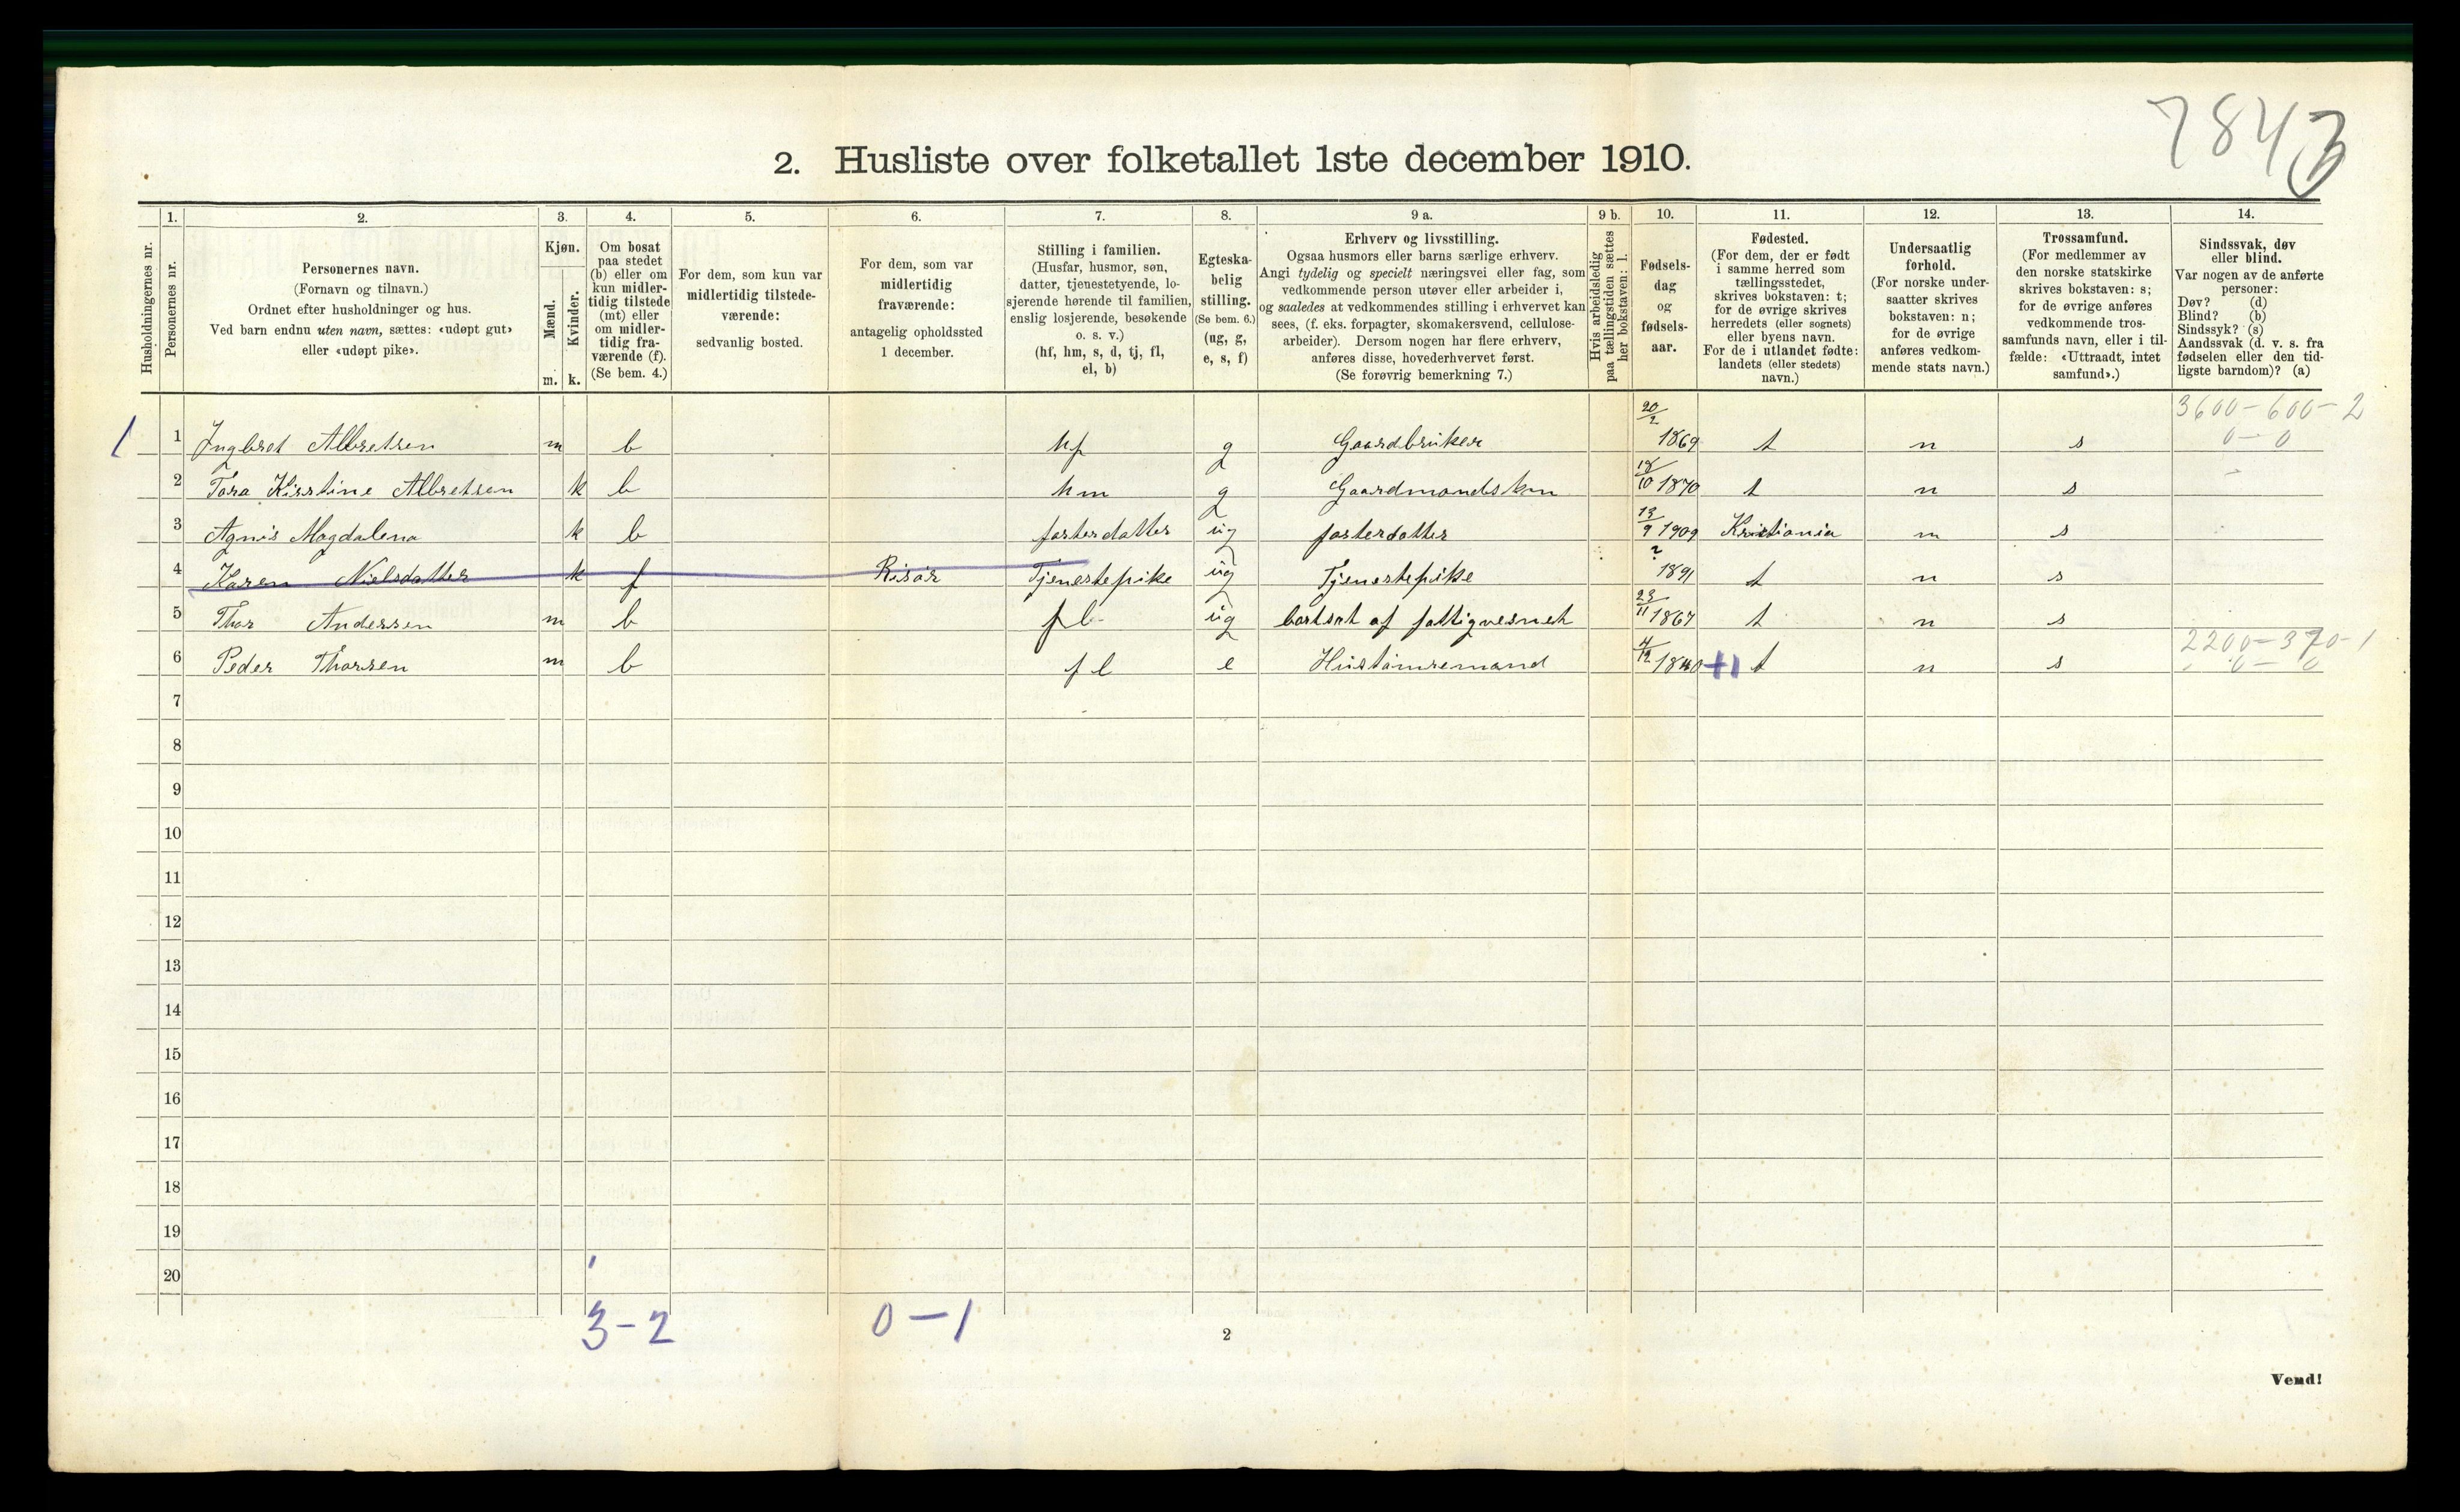 7843
2. Husliste over folketallet 1ste december 1910.
1. 2. 3. 4. 5. 6. 7. 8. 9 a. 9 b. 10. 11. 12. 13. 14.
Husholdningernes nr.
Personernes nr.
Personernes navn.
(Fornavn og tilnavn.)
Ordnet efter husholdninger og hus.
Ved barn endnu uten navn, sættes: «udøpt gut»
eller «udøpt pike».
Kjøn.
Mænd.
Kvinder.
m. k.
Om bosat
paa stedet
(b) eller om
kun midler-
tidig tilstede
(mt) eller
om midler-
tidig fra-
værende (f).
(Se bem. 4.)
For dem, som kun var
midlertidig tilstede-
værende:
sedvanlig bosted.
For dem, som var
midlertidig
fraværende:
antagelig opholdssted
1 december.
Stilling i familien.
(Husfar, husmor, søn,
datter, tjenestetyende, lo-
sjerende hørende til familien,
enslig losjerende, besøkende
o. s. v.)
(hf, hm, s, d, tj, fl,
el, b)
Egteska-
belig
stilling.
(Se bem. 6.)
(ug, g,
e, s, f)
Erhverv og livsstilling.
Ogsaa husmors eller barns særlige erhverv.
Angi tydelig og specielt næringsvei eller fag, som
vedkommende person utøver eller arbeider i,
og saaledes at vedkommendes stilling i erhvervet kan
sees, (f. eks. forpagter, skomakersvend, cellulose-
arbeider). Dersom nogen har flere erhverv,
anføres disse, hovederhvervet først.
(Se forøvrig bemerkning 7.)
Hvis arbeidsledig
paa tællingstiden sættes
her bokstaven: l.
Fødsels-
dag
og
fødsels-
aar.
Fødested.
(For dem, der er født
i samme herred som
tællingsstedet,
skrives bokstaven: t;
for de øvrige skrives
herredets (eller sognets)
eller byens navn.
For de i utlandet fødte:
landets (eller stedets)
navn.)
Undersaatlig
forhold.
(For norske under-
saatter skrives
bokstaven: n;
for de øvrige
anføres vedkom-
mende stats navn.)
Trossamfund.
(For medlemmer av
den norske statskirke
skrives bokstaven: s;
for de øvrige anføres
vedkommende tros-
samfunds navn, eller i til-
fælde: «Uttraadt, intet
samfund».)
Sindssvak, døv
eller blind.
Var nogen av de anførte
personer:
Døv? (d)
Blind? (b)
Sindssyk? (s)
Aandssvak (d. v. s. fra
fødselen eller den tid-
ligste barndom)? (a)
3600-600-2
0-0
1 1 Ingbret Albretsen m b hf g Gaardbruker 20/2 1869 t n s
2 Tora Kirstine Albretsen k b hm g Gaardmandskone 18/10 1870 t n s
3 Agnis Magdalena k b fosterdatter ug fosterdatter 13/9 1909 Kristiania n s
4 Karen Nielsdatter k f Risør Tjenestepike ug Tjenestepike ? 1891 t n s
5 Thor Andersen m b fl ug bortsat af fattigvesnet 23/11 1867 t n s
2200-370-1
6 Peder Thorsen m b fl e Hustømremand 4/12 1840 t n s 0-0
7
8
9
10
11
12
13
14
15
16
17
18
19
20
3-2 0-1
2
Vend!